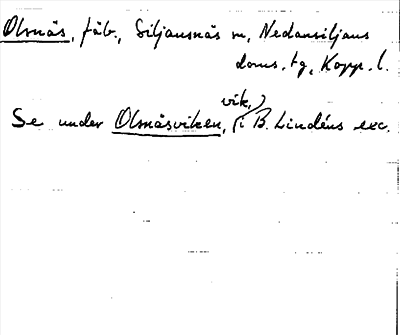 Olmäs, fäb., Siljansnäs sn, Nedansiljans
doms. tg, Kopp. l.
Se under Olmäsviken, vik, i B. Lindéns exc.